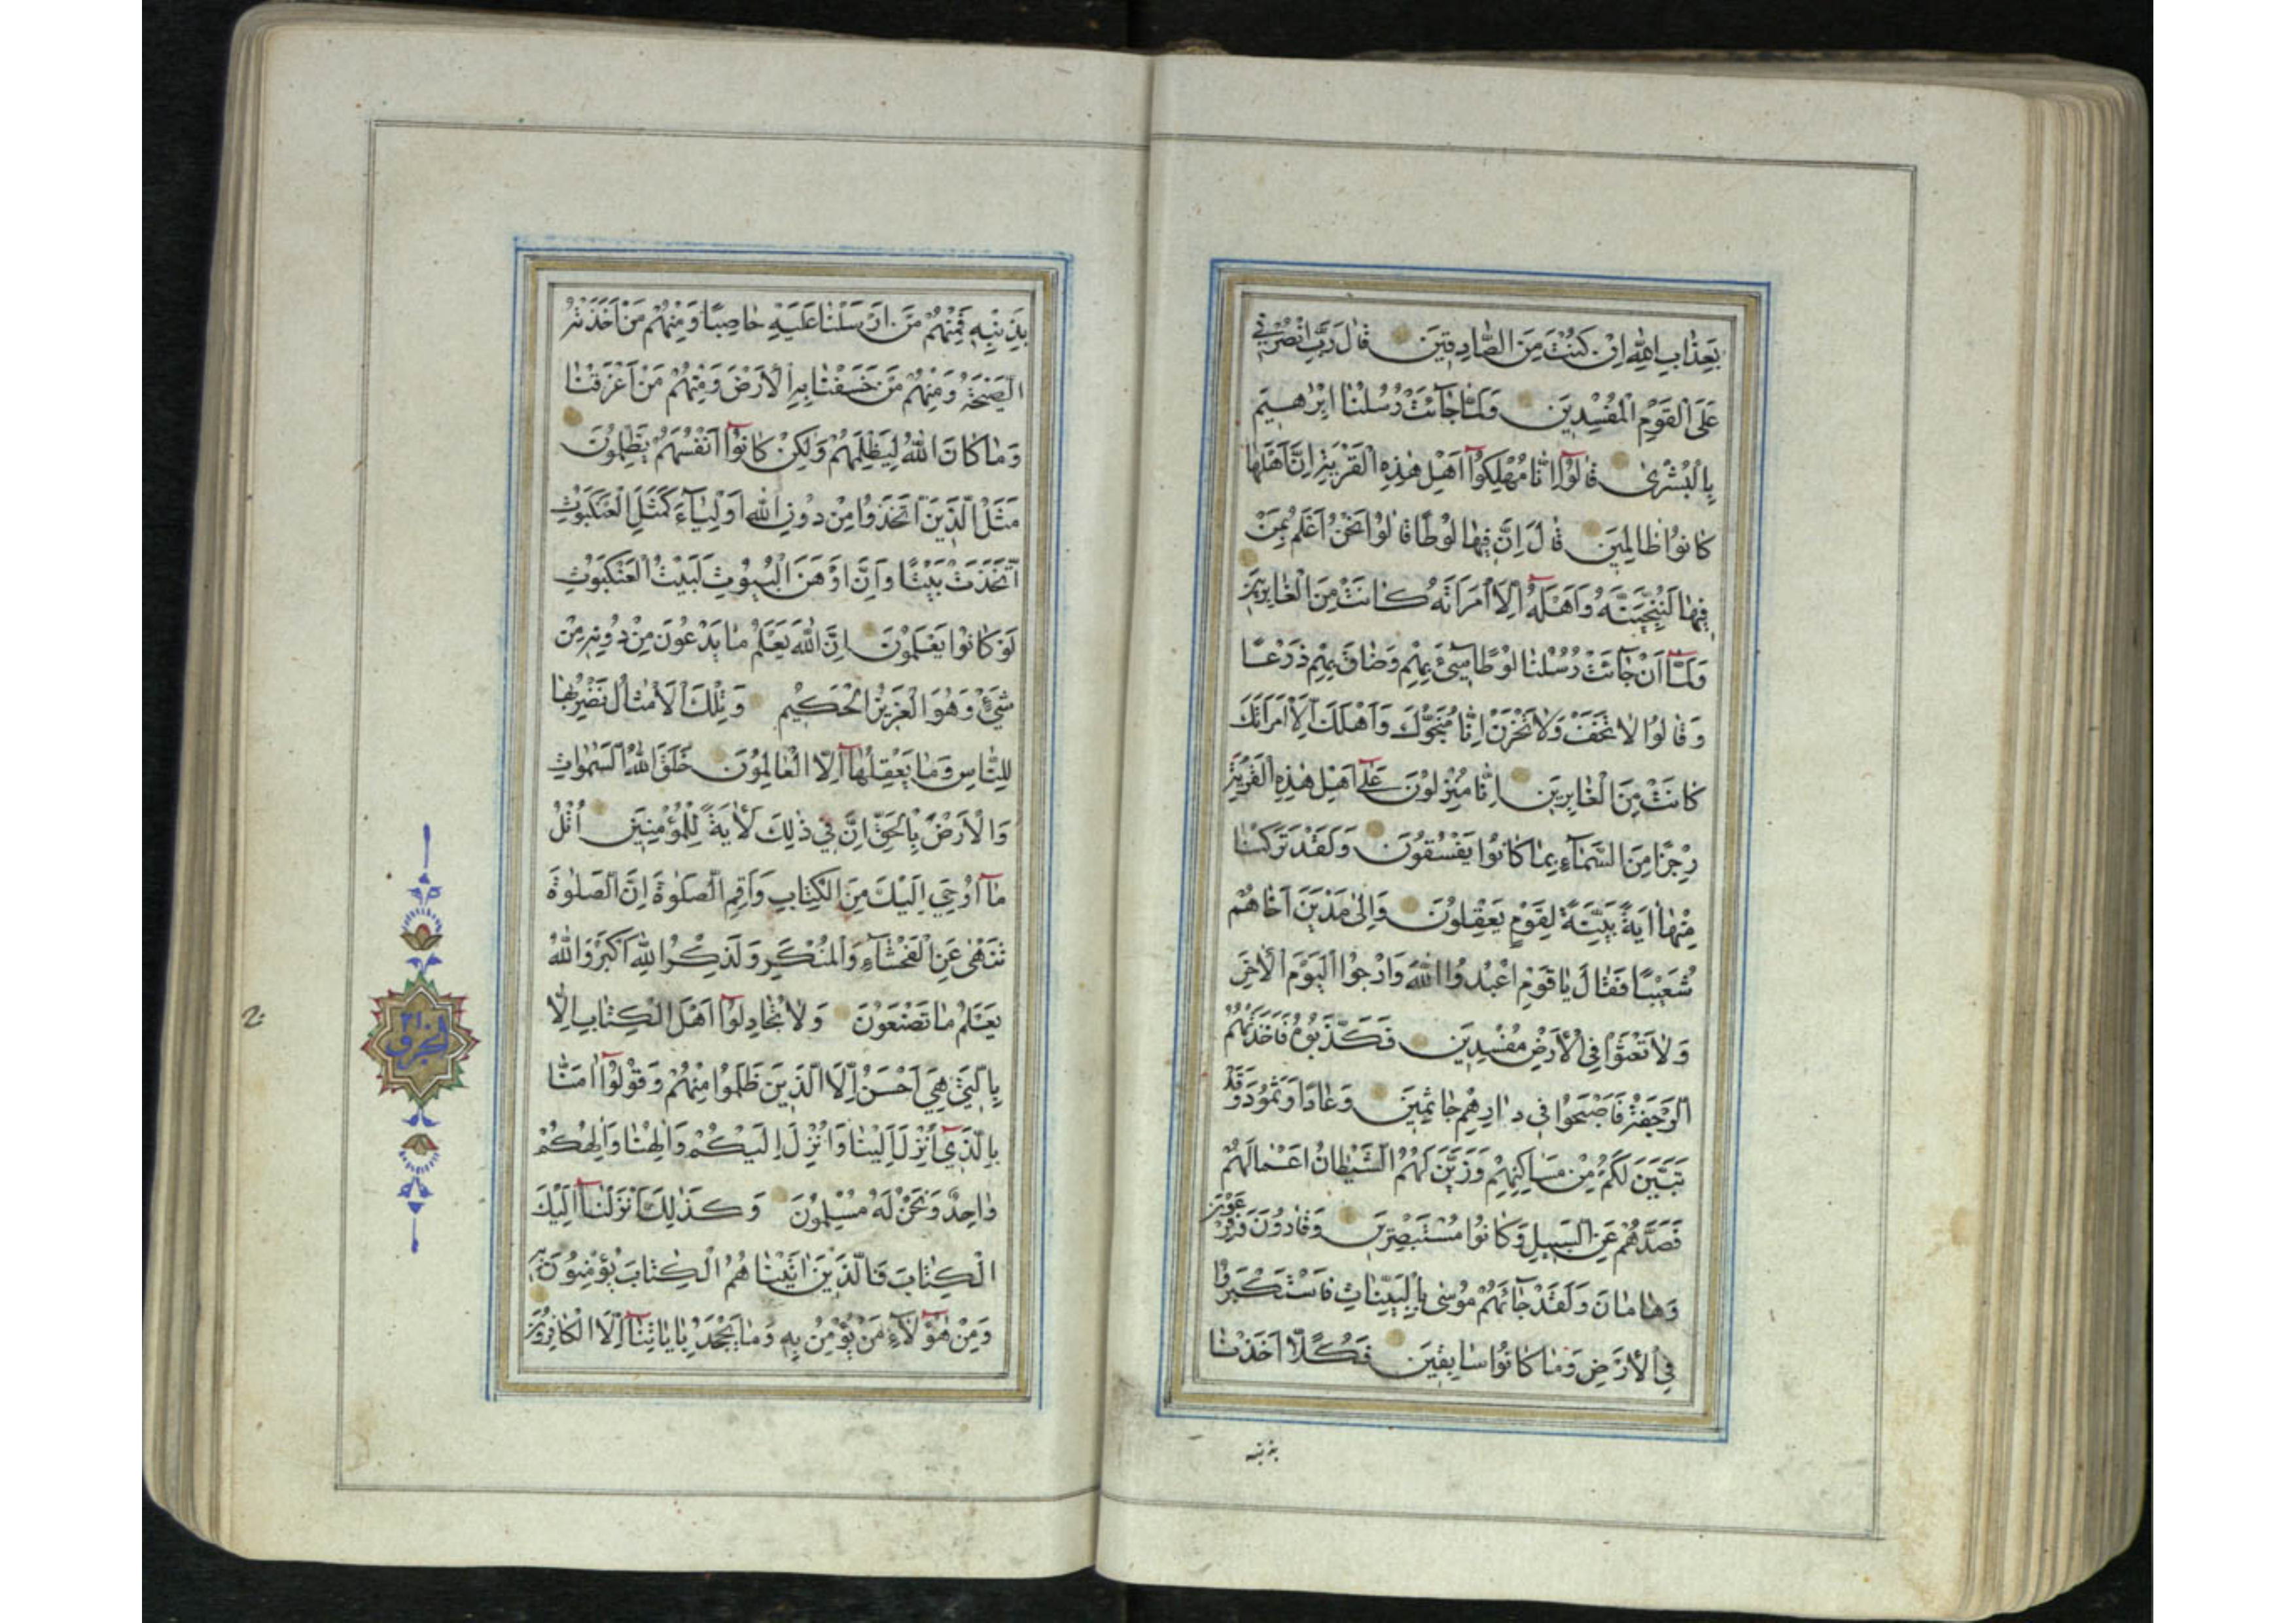 بِعَذَابِ اللهِ اِنْ كُنْتَ مِنَ الصَّادِقِينَ قَالَ رَبِّ انْصُرْنِي
عَلَى الْقَوْمِ الْمُفْسِدِينَ وَلَمَّا جَائَتْ رُسُلُنَا اِبْرٰهِيمَ
بِالْبُشْرٰى قَالُوٓا اِنَّا مُهْلِكُوٓا اَهْلِ هٰذِهِ الْقَرْيَةِ اِنَّ اَهْلَهَا
كَانُوا ظَالِمِينَ قَالَ اِنَّ فِيهَا لُوطًا قَالُوا نَحْنُ اَعْلَمُ بِمَنْ
فِيهَا لَنُنَجِّيَنَّهُ وَاَهْلَهُٓ اِلَّا امْرَاَتَهُ كَانَتْ مِنَ الْغَابِرِينَ
وَلَمَّٓا اَنْ جَائَتْ رُسُلُنَا لُوطًا سِیٓءَ بِهِمْ وَضَاقَ بِهِمْ ذَرْعًا
وَقَالُوا لَا تَخَفْ وَلَا تَحْزَنْ اِنَّا مُنَجُّوكَ وَاَهْلَكَ اِلَّا امْرَاَتَكَ
كَانَتْ مِنَ الْغَابِرِينَ اِنَّا مُنْزِلُونَ عَلٰٓى اَهْلِ هٰذِهِ الْقَرْيَةِ
رِجْزًا مِنَ السَّمَآءِ بِمَا كَانُوا يَفْسُقُونَ وَلَقَدْ تَرَكْنَا
مِنْهَٓا اٰيَةً بَيِّنَةً لِقَوْمٍ يَعْقِلُونَ وَاِلٰى مَدْيَنَ اَخَاهُمْ
شُعَيْبًا فَقَالَ يَا قَوْمِ اعْبُدُوا اللهَ وَارْجُوا الْيَوْمَ الْاٰخِرَ
وَلَا تَعْثَوْا فِي الْاَرْضِ مُفْسِدِينَ فَكَذَّبُوهُ فَاَخَذَتْهُمُ
الرَّجْفَةُ فَاَصْبَحُوا فِي دَارِهِمْ جَاثِمِينَ وَعَادًا وَثَمُودَ وَقَدْ
تَبَيَّنَ لَكُمْ مِنْ مَسَاكِنِهِمْ وَزَيَّنَ لَهُمُ الشَّيْطَانُ اَعْمَالَهُمْ
فَصَدَّهُمْ عَنِ السَّبِيلِ وَكَانُوا مُسْتَبْصِرِينَ وَقَارُونَ وَفِرْعَوْنَ
وَهَامَانَ وَلَقَدْ جَائَهُمْ مُوسٰى بِالْبَيِّنَاتِ فَاسْتَكْبَرُوا
فِي الْاَرْضِ وَمَا كَانُوا سَابِقِينَ فَكُلًّا اَخَذْنَا
بذنبه
بِذَنْبِهِ فَمِنْهُمْ مَنْ اَرْسَلْنَا عَلَيْهِ حَاصِبًا وَمِنْهُمْ مَنْ اَخَذَتْهُ
الصَّيْحَةُ وَمِنْهُمْ مَنْ خَسَفْنَا بِهِ الْاَرْضَ وَمِنْهُمْ مَنْ اَغْرَقْنَا
وَمَا كَانَ اللهُ لِيَظْلِمَهُمْ وَلٰكِنْ كَانُوٓا اَنْفُسَهُمْ يَظْلِمُونَ
مَثَلُ الَّذِينَ اتَّخَذُوا مِنْ دُونِ اللهِ اَوْلِيَآءَ كَمَثَلِ الْعَنْكَبُوتِ
اتَّخَذَتْ بَيْتًا وَاِنَّ اَوْهَنَ الْبُيُوتِ لَبَيْتُ الْعَنْكَبُوتِ
لَوْ كَانُوا يَعْلَمُونَ اِنَّ اللهَ يَعْلَمُ مَا يَدْعُونَ مِنْ دُونِهِ مِنْ
شَيْءٍ وَهُوَ الْعَزِيزُ الْحَكِيمُ وَتِلْكَ الْاَمْثَالُ نَضْرِبُهَا
لِلنَّاسِ وَمَا يَعْقِلُهَٓا اِلَّا الْعَالِمُونَ خَلَقَ اللهُ السَّمٰوَاتِ
وَالْاَرْضَ بِالْحَقِّ اِنَّ فِي ذٰلِكَ لَاٰيَةً لِلْمُؤْمِنِينَ اُتْلُ
مَٓا اُوحِيَ اِلَيْكَ مِنَ الْكِتَابِ وَاَقِمِ الصَّلٰوةَ اِنَّ الصَّلٰوةَ
تَنْهٰى عَنِ الْفَحْشَآءِ وَالْمُنْكَرِ وَلَذِكْرُ اللهِ اَكْبَرُ وَاللهُ
يَعْلَمُ مَا تَصْنَعُونَ وَلَا تُجَادِلُوٓا اَهْلَ الْكِتَابِ اِلَّا
بِالَّتِي هِيَ اَحْسَنُ اِلَّا الَّذِينَ ظَلَمُوا مِنْهُمْ وَقُولُوٓا اٰمَنَّا
بِالَّذِيٓ اُنْزِلَ اِلَيْنَا وَاُنْزِلَ اِلَيْكُمْ وَاِلٰهُنَا وَاِلٰهُكُمْ
وَاحِدٌ وَنَحْنُ لَهُ مُسْلِمُونَ وَكَذٰلِكَ اَنْزَلْنَٓا اِلَيْكَ
الْكِتَابَ فَالَّذِينَ اٰتَيْنَاهُمُ الْكِتَابَ يُؤْمِنُونَ بِهِ
وَمِنْ هٰٓؤُلَآءِ مَنْ يُؤْمِنُ بِهِ وَمَا يَجْحَدُ بِاٰيَاتِنَٓا اِلَّا الْكَافِرُونَ